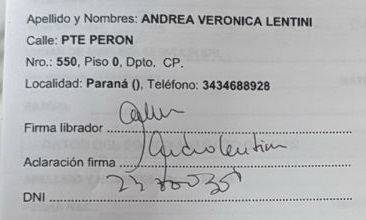 Apellido y Nombres: ANDREA VERONICA LENTINI
Calle: PTE PERON
Nro.: 550, Piso 0, Dpto. CP.
Localidad: Paraná (), Teléfono: 3434688928
Firma librador
Aclaración firma Andrea Lentini
DNI